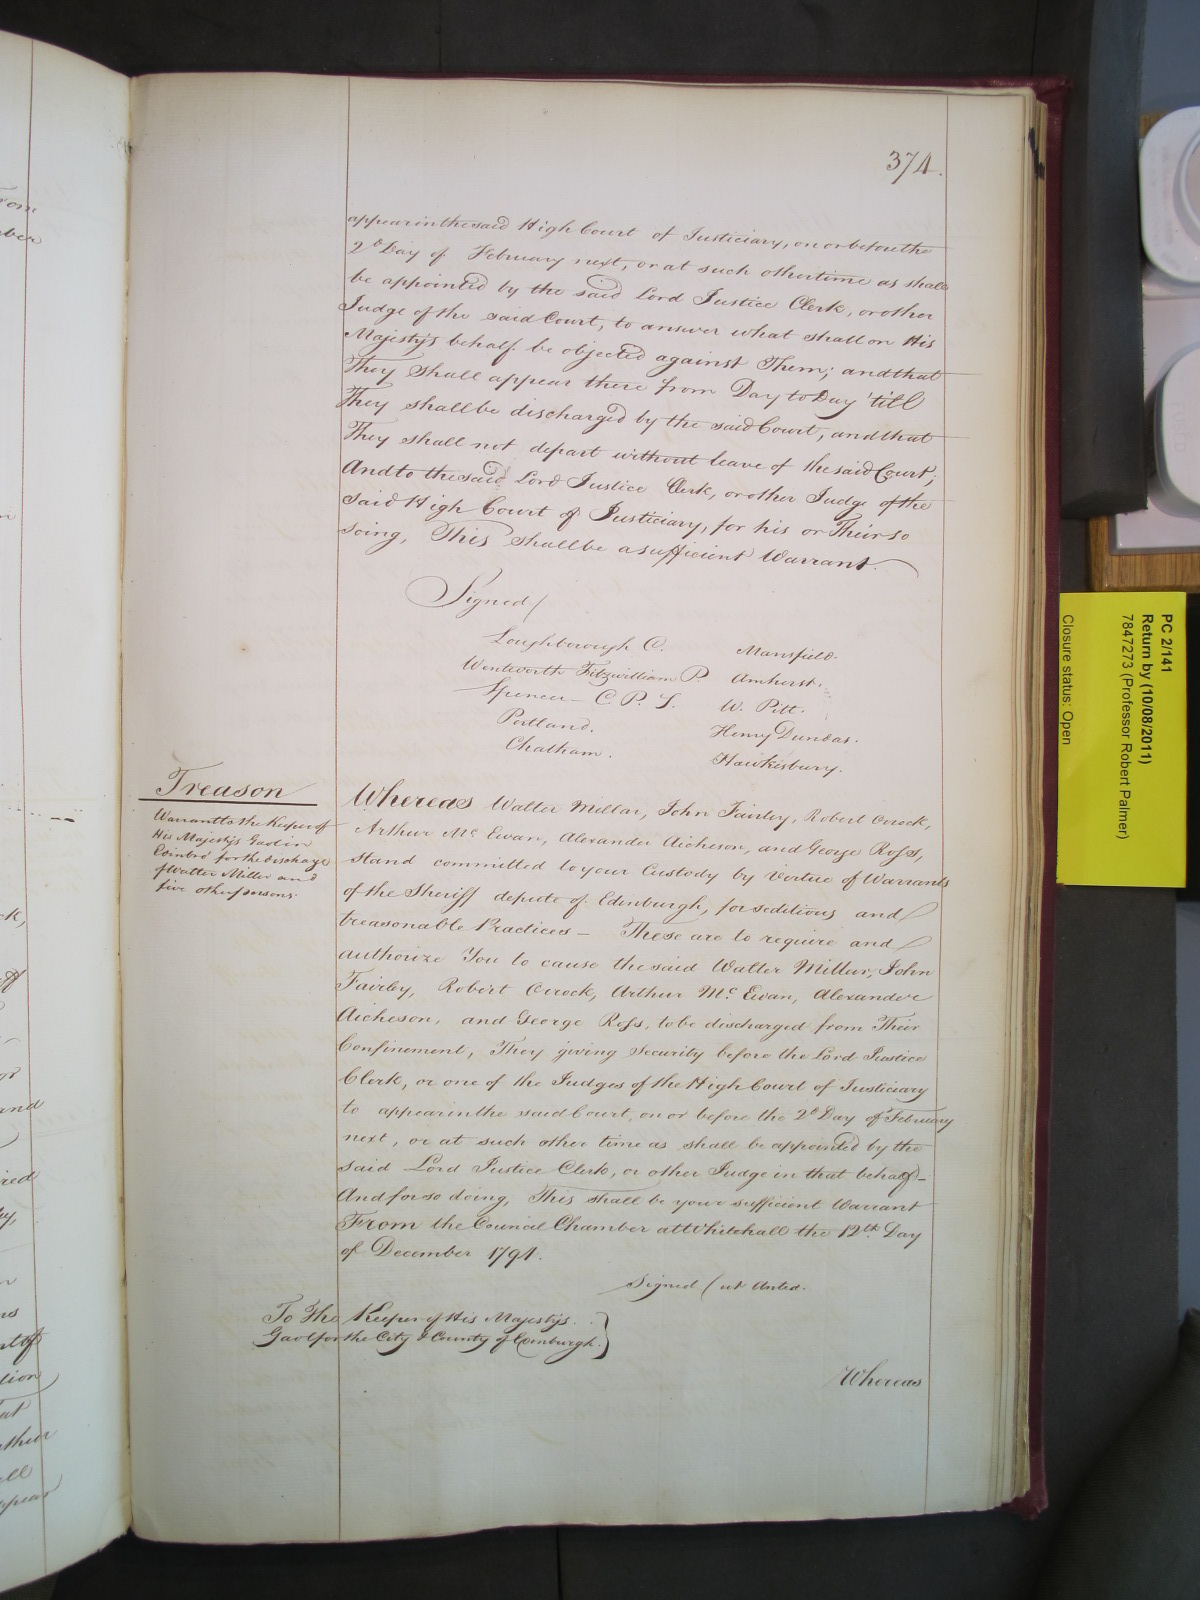 374.
appear in the said High Court of Justiciary, on or before the
2d Day of February next, or at such other time as shall
be appointed by the said Lord Justice Clerk, or other
Judge of the said Court, to answer what shall on His
Majesty's behalf be objected against Them; and that
They shall appear there from Day to Day 'till
They shall be discharged by the said Court, and that
They shall not depart without leave of the said Court;
And to the said Lord Justice Clerk, or other Judge of the
said High Court of Justiciary, for his or Their so
doing, This shall be a sufficient Warrant.
Signed/
Loughborough C. Mansfield.
Wentworth Fitzwilliam P Amherst.
Spencer C. P. S. W. Pitt.
Portland. Henry Dundas.
Chatham. Hawkesbury.
Treason
Warrant to the Keeper of
His Majesty's Gaol in
Edinbro' for the discharge
of Walter Miller and
five other persons.
Whereas Walter Millar, John Fairley, Robert Orrock,
Arthur Mc Ewan, Alexander Aicheson, and George Ross,
stand committed to your Custody by Virtue of Warrants
of the Sheriff depute of Edinburgh, for seditious and
treasonable Practices — These are to require and
authorize You to cause the said Walter Millar, John
Fairley, Robert Orrock, Arthur Mc Ewan, Alexander
Aicheson, and George Ross, to be discharged from Their
Confinement, They giving Security before the Lord Justice
Clerk, or one of the Judges of the High Court of Justiciary
to appear in the said Court, on or before the 2d Day of February
next, or at such other time as shall be appointed by the
said Lord Justice Clerk, or other Judge in that behalf —
And for so doing, This shall be your sufficient Warrant
From the Council Chamber at Whitehall the 12th Day
of December 1794.
Signed (ut Antea.
To The Keeper of His Majesty's
Gaol for the City & County of Edinburgh.
Whereas
PC 2/141
Return by (10/08/2011)
7847273 (Professor Robert Palmer)
Closure status: Open